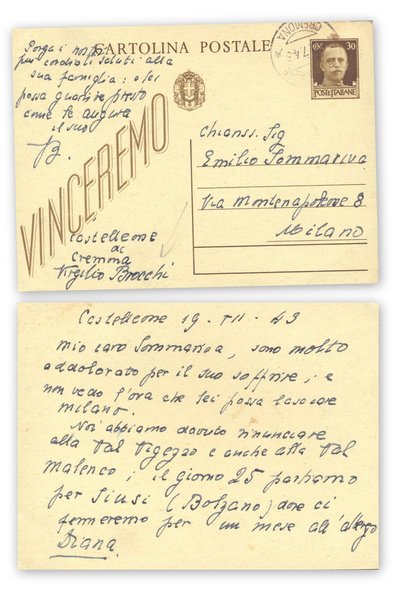 Porga i nostri
più cordiali saluti alla
sua famiglia: e lei
possa guarire presto
come le augura
il suo
B.
CARTOLINA POSTALE
CREMONA
30
POSTE ITALIANE
VINCEREMO
Chiariss. Sig
Emilio Sommariva
Via Montenapoleone 8
Milano
Castelleone
di
Cremona
Virgilio Brocchi
Castelleone 19 - VII - 43
mio caro Sommariva, sono molto
addolorato per il suo soffrire; e
non vedo l'ora che lei possa lasciare
milano.
Noi abbiamo dovuto rinunciare
alla Val Vigezzo e anche alla Val
Malenco; il giorno 25 partiamo
per Siusi (Bolzano) dove ci
fermeremo per un mese all'albergo
Diana.